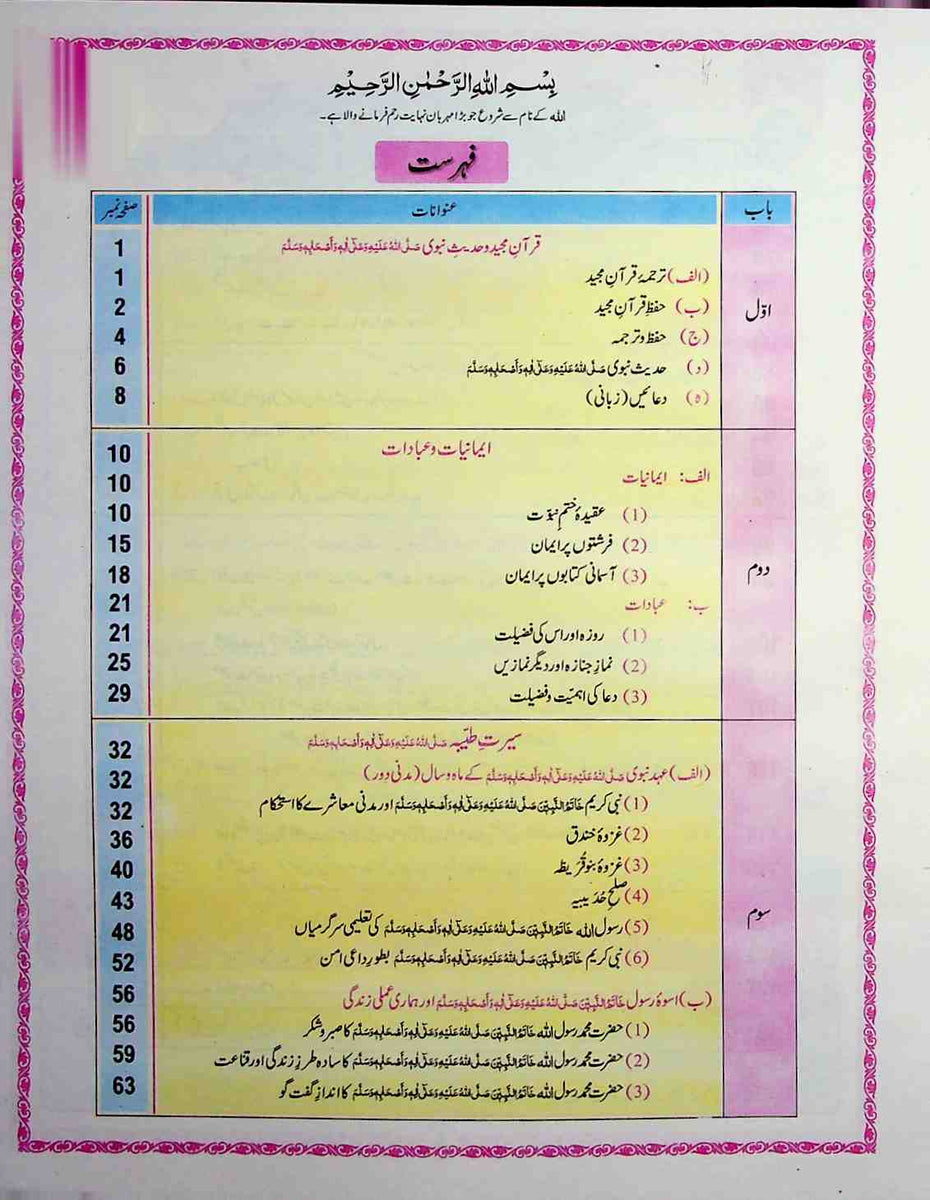 بِسْمِ اللهِ الرَّحْمٰنِ الرَّحِيْمِ
اللہ کے نام سے شروع جو بڑا مہربان نہایت رحم فرمانے والا ہے۔
فہرست
باب عنوانات صفحہ نمبر
قرآنِ مجید و حدیثِ نبوی صَلَّى اللهُ عَلَيْهِ وَعَلٰى اٰلِهٖ وَأَصْحَابِهٖ وَسَلَّمَ 1
(الف) ترجمۂ قرآنِ مجید 1
اوّل (ب) حفظِ قرآنِ مجید 2
(ج) حفظ و ترجمہ 4
(د) حدیث نبوی صَلَّى اللهُ عَلَيْهِ وَعَلٰى اٰلِهٖ وَأَصْحَابِهٖ وَسَلَّمَ 6
(ہ) دعائیں (زبانی) 8
ایمانیات و عبادات 10
الف: ایمانیات 10
(1) عقیدۂ ختمِ نبوّت 10
(2) فرشتوں پر ایمان 15
دوم (3) آسمانی کتابوں پر ایمان 18
ب: عبادات 21
(1) روزہ اور اس کی فضیلت 21
(2) نمازِ جنازہ اور دیگر نمازیں 25
(3) دعا کی اہمیّت و فضیلت 29
سیرتِ طیّبہ صَلَّى اللهُ عَلَيْهِ وَعَلٰى اٰلِهٖ وَأَصْحَابِهٖ وَسَلَّمَ 32
(الف) عہدِ نبوی صَلَّى اللهُ عَلَيْهِ وَعَلٰى اٰلِهٖ وَأَصْحَابِهٖ وَسَلَّمَ کے ماہ و سال (مدنی دور) 32
(1) نبی کریم خَاتَمُ النَّبِيّٖنَ صَلَّى اللهُ عَلَيْهِ وَعَلٰى اٰلِهٖ وَأَصْحَابِهٖ وَسَلَّمَ اور مدنی معاشرے کا استحکام 32
(2) غزوۂ خندق 36
(3) غزوۂ بنو قُریظہ 40
(4) صلحِ حُدَیبیہ 43
سوم (5) رسول اللہ خَاتَمُ النَّبِيّٖنَ صَلَّى اللهُ عَلَيْهِ وَعَلٰى اٰلِهٖ وَأَصْحَابِهٖ وَسَلَّمَ کی تعلیمی سرگرمیاں 48
(6) نبی کریم خَاتَمُ النَّبِيّٖنَ صَلَّى اللهُ عَلَيْهِ وَعَلٰى اٰلِهٖ وَأَصْحَابِهٖ وَسَلَّمَ بطور داعی امن 52
(ب) اسوۂ رسول خَاتَمُ النَّبِيّٖنَ صَلَّى اللهُ عَلَيْهِ وَعَلٰى اٰلِهٖ وَأَصْحَابِهٖ وَسَلَّمَ اور ہماری عملی زندگی 56
(1) حضرت محمد رسول اللہ خَاتَمُ النَّبِيّٖنَ صَلَّى اللهُ عَلَيْهِ وَعَلٰى اٰلِهٖ وَأَصْحَابِهٖ وَسَلَّمَ کا صبر و شکر 56
(2) حضرت محمد رسول اللہ خَاتَمُ النَّبِيّٖنَ صَلَّى اللهُ عَلَيْهِ وَعَلٰى اٰلِهٖ وَأَصْحَابِهٖ وَسَلَّمَ کا سادہ طرزِ زندگی اور قناعت 59
(3) حضرت محمد رسول اللہ خَاتَمُ النَّبِيّٖنَ صَلَّى اللهُ عَلَيْهِ وَعَلٰى اٰلِهٖ وَأَصْحَابِهٖ وَسَلَّمَ کا اندازِ گفت گو 63